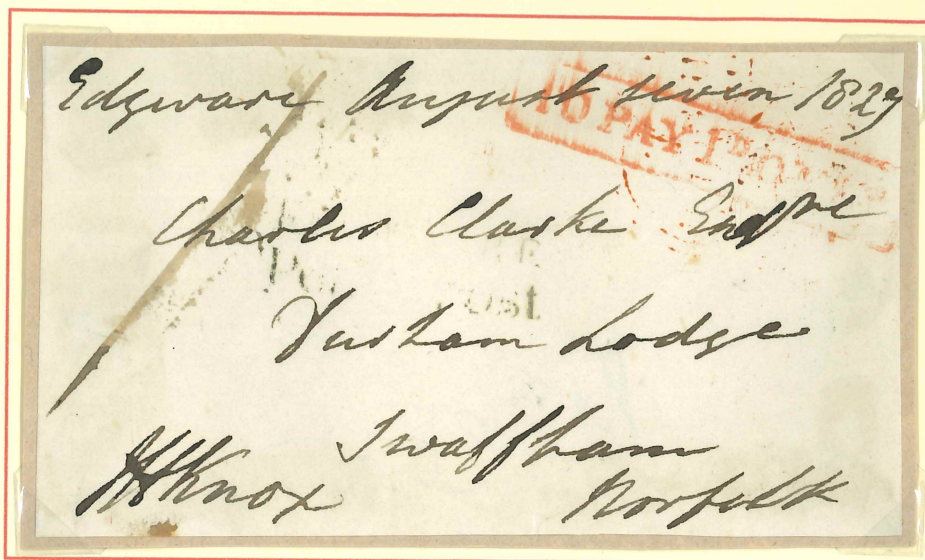 Edgware August seven 1827
TO PAY 1D ONLY
Charles Clarke Esqre
Post
Durham Lodge
Swaffham
HKnox Norfolk